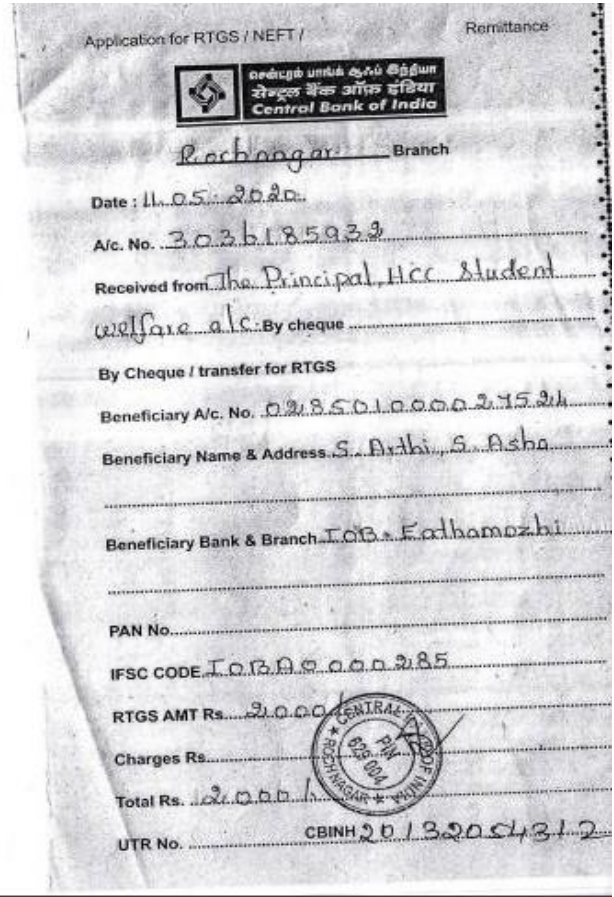 Application for RTGS / NEFT / Remittance
சென்ட்ரல் பாங்க் ஆஃப் இந்தியா
सेन्ट्रल बैंक ऑफ इंडिया
Central Bank of India
Rochnagar Branch
Date : 11.05.2020.
A/c. No. 3036185932
Received from The Principal, Hcc Student
welfare a/c. By cheque
By Cheque / transfer for RTGS
Beneficiary A/c. No. 028501000027524
Beneficiary Name & Address S. Arthi, S. Asha
Beneficiary Bank & Branch IOB - Eathamozhi
PAN No.
IFSC CODE IOBA0000285
RTGS AMT Rs. 2000/
Charges Rs.
Total Rs. 2000/.
UTR No. CBINH20132054312
CENTRAL BANK OF INDIA
ROCHNAGAR
PIN
629 004